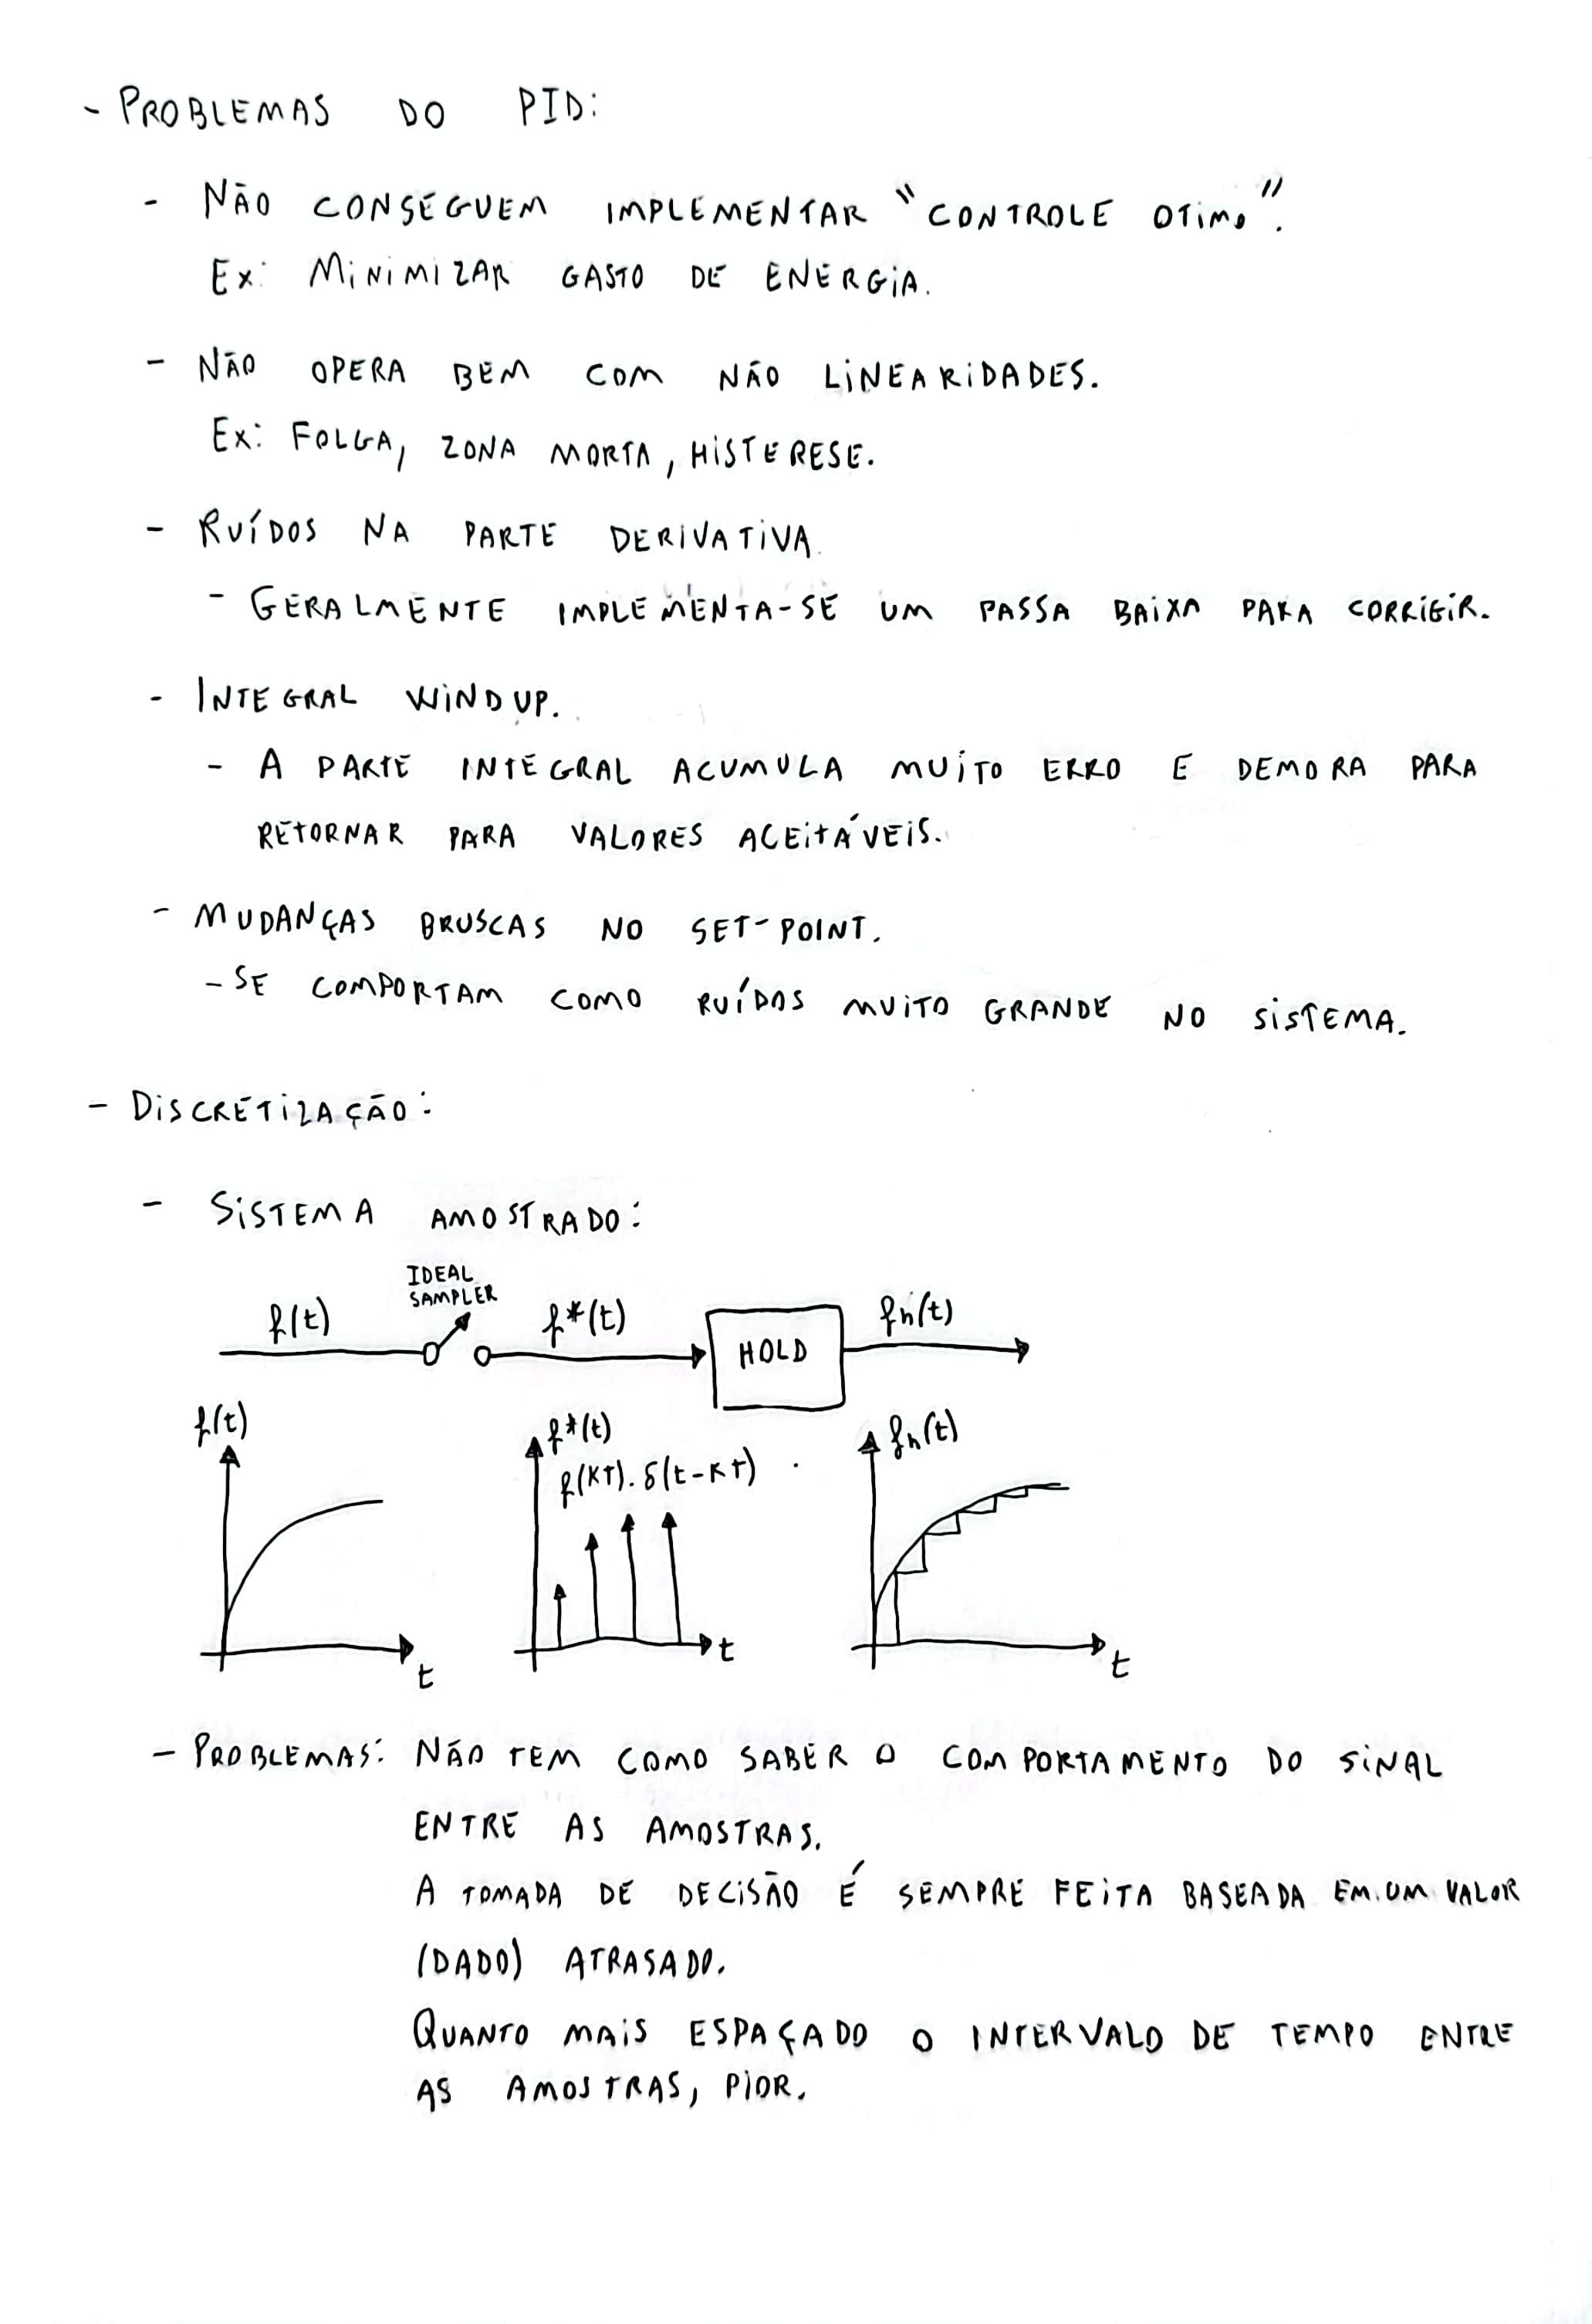 - PROBLEMAS DO PID:
- NÃO CONSEGUEM IMPLEMENTAR "CONTROLE OTIMO".
Ex: MINIMIZAR GASTO DE ENERGIA.
- NÃO OPERA BEM COM NÃO LINEARIDADES.
Ex: FOLGA, ZONA MORTA, HISTERESE.
- RUÍDOS NA PARTE DERIVATIVA.
- GERALMENTE IMPLEMENTA-SE UM PASSA BAIXA PARA CORRIGIR.
- INTEGRAL WINDUP.
- A PARTE INTEGRAL ACUMULA MUITO ERRO E DEMORA PARA
RETORNAR PARA VALORES ACEITÁVEIS.
- MUDANÇAS BRUSCAS NO SET-POINT.
- SE COMPORTAM COMO RUÍDOS MUITO GRANDE NO SISTEMA.
- DISCRETIZAÇÃO:
- SISTEMA AMOSTRADO:
IDEAL
SAMPLER
f(t) f*(t) HOLD fh(t)
f(t) f*(t) fh(t)
f(KT).δ(t-KT)
t t t
- PROBLEMAS: NÃO TEM COMO SABER O COMPORTAMENTO DO SINAL
ENTRE AS AMOSTRAS.
A TOMADA DE DECISÃO É SEMPRE FEITA BASEADA EM UM VALOR
(DADO) ATRASADO.
QUANTO MAIS ESPAÇADO O INTERVALO DE TEMPO ENTRE
AS AMOSTRAS, PIOR.